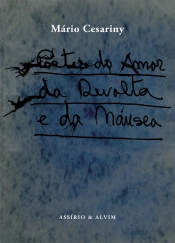 Mário Cesariny
Poetas do Amor
da Revolta
e da Náusea
ASSÍRIO & ALVIM